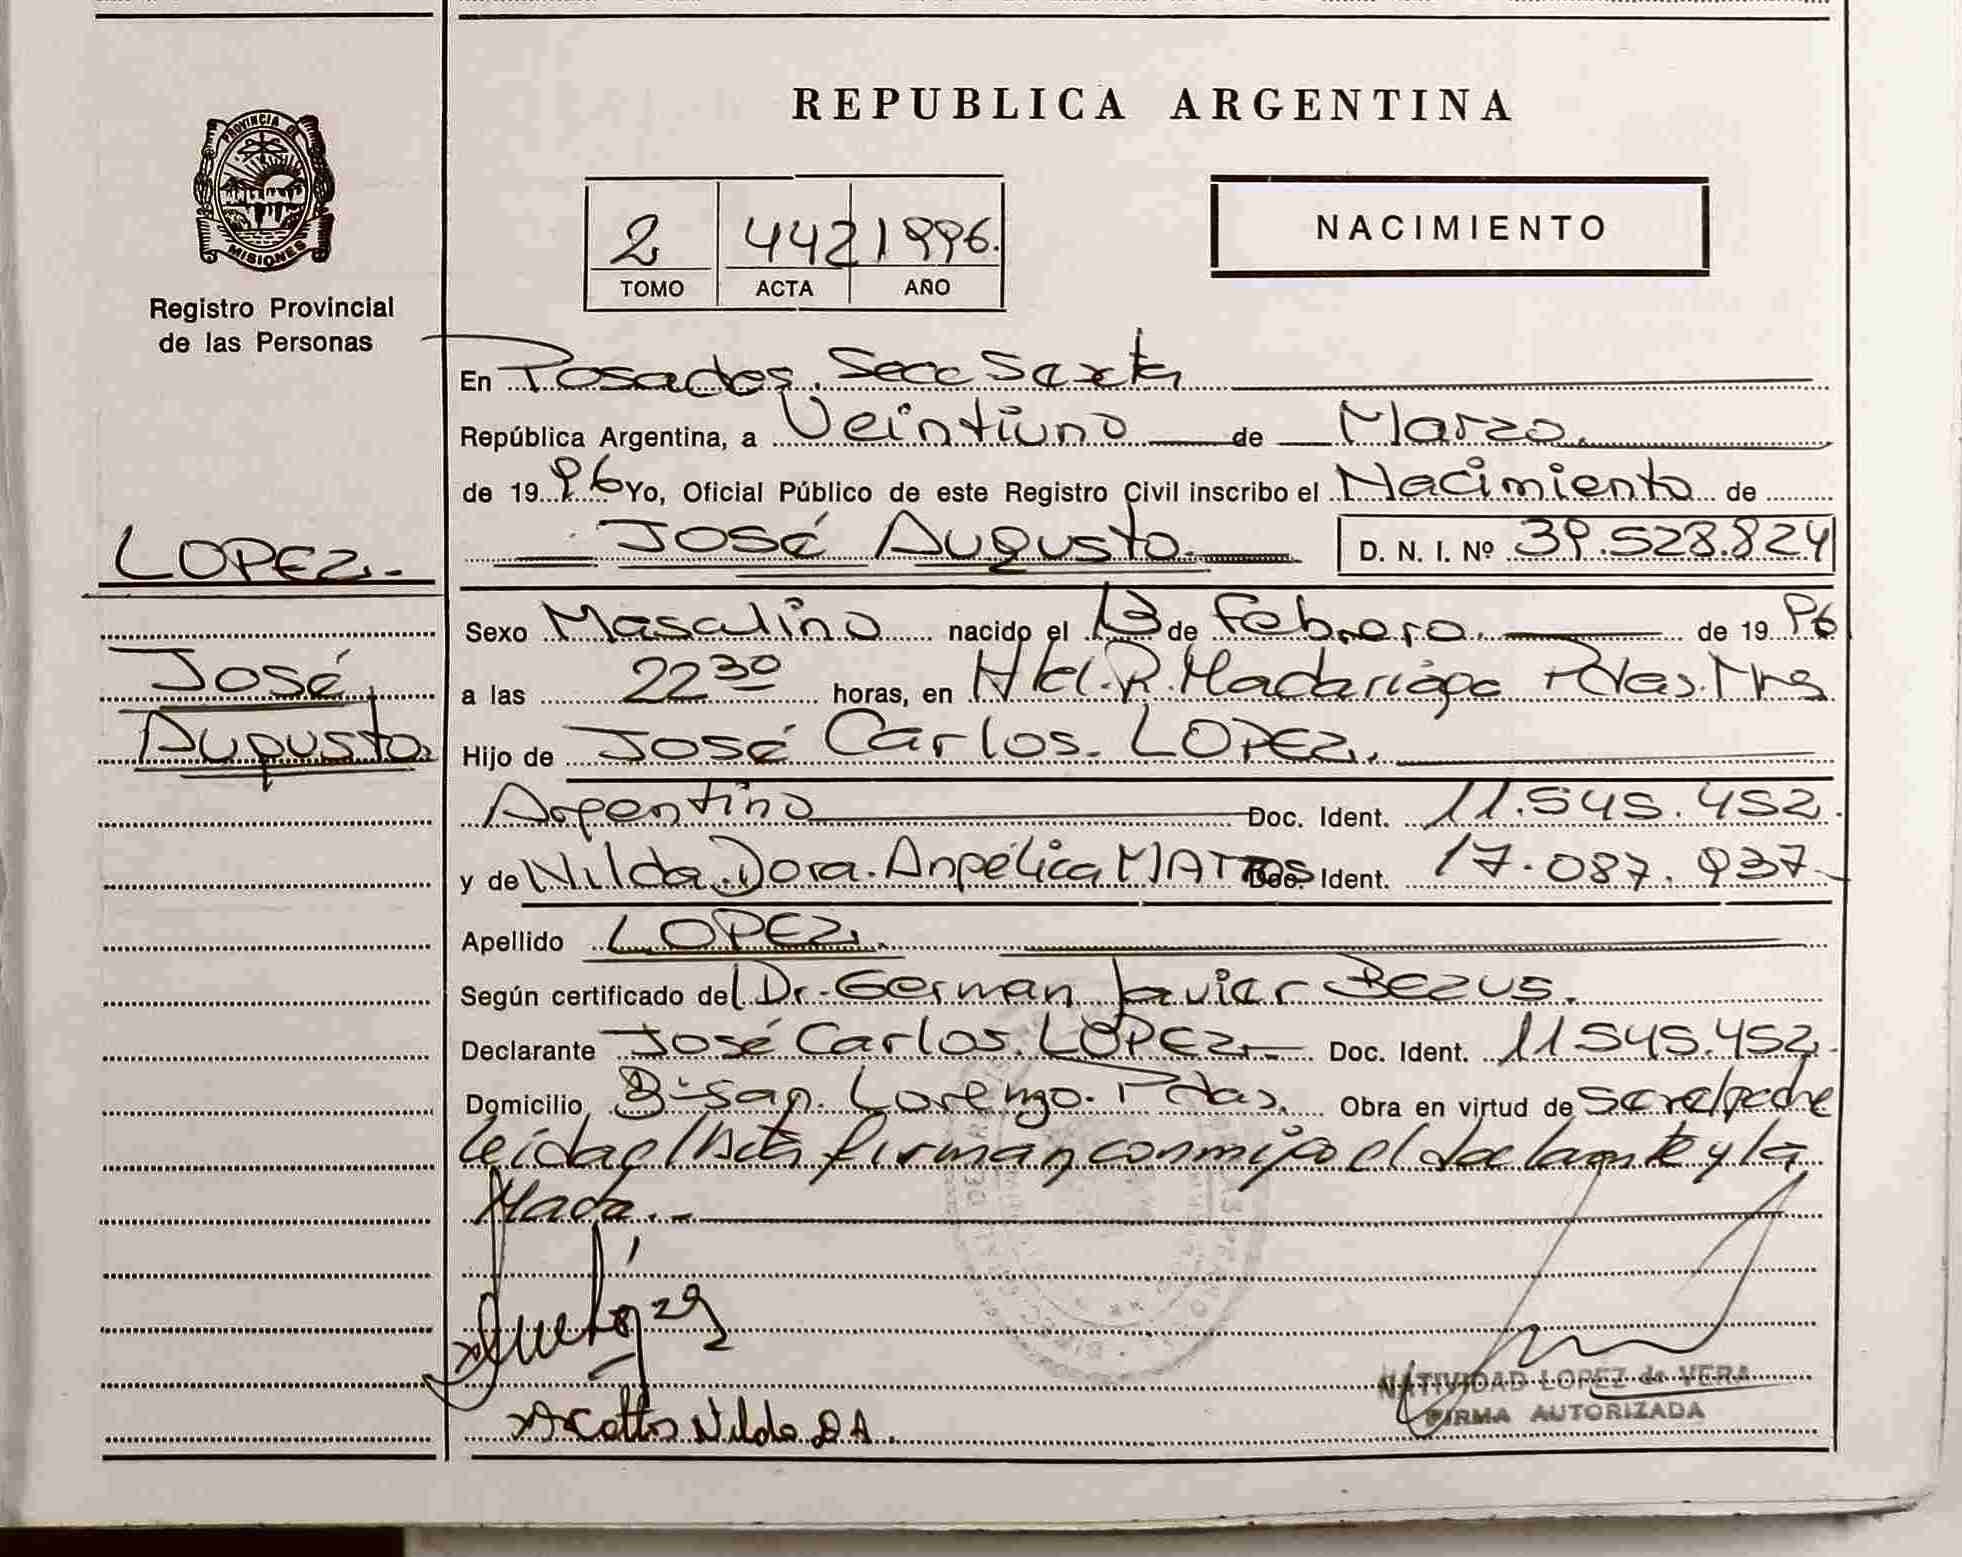 REPUBLICA ARGENTINA
PROVINCIA DE
MISIONES
Registro Provincial
de las Personas
2 442 1996.
TOMO ACTA AÑO
NACIMIENTO
En Posadas. Secc Sexta
República Argentina, a Veintiuno de Marzo.
de 1996 Yo, Oficial Público de este Registro Civil inscribo el Nacimiento de
José Augusto. D. N. I. Nº 39.528.824
LOPEZ.-
José
Augusto
Sexo Masculino nacido el 13 de Febrero. de 1996
a las 22 30 horas, en R. Madariaga Pdas. Mns
Hijo de José Carlos. LOPEZ.
Argentino Doc. Ident. 11.545.452.
y de Nilda. Dora. Angélica MATTOS Doc. Ident. 17.087.937.-
Apellido LOPEZ.
Según certificado del Dr. German Javier Bezus.
Declarante José Carlos. LOPEZ.- Doc. Ident. 11.545.452.
Domicilio Bº San. Lorenzo. Pdas. Obra en virtud de ser el padre
leida el Acta firman conmigo el declarante y la
Madre.-
Nilda D A.
NATIVIDAD LOPEZ de VERA
FIRMA AUTORIZADA